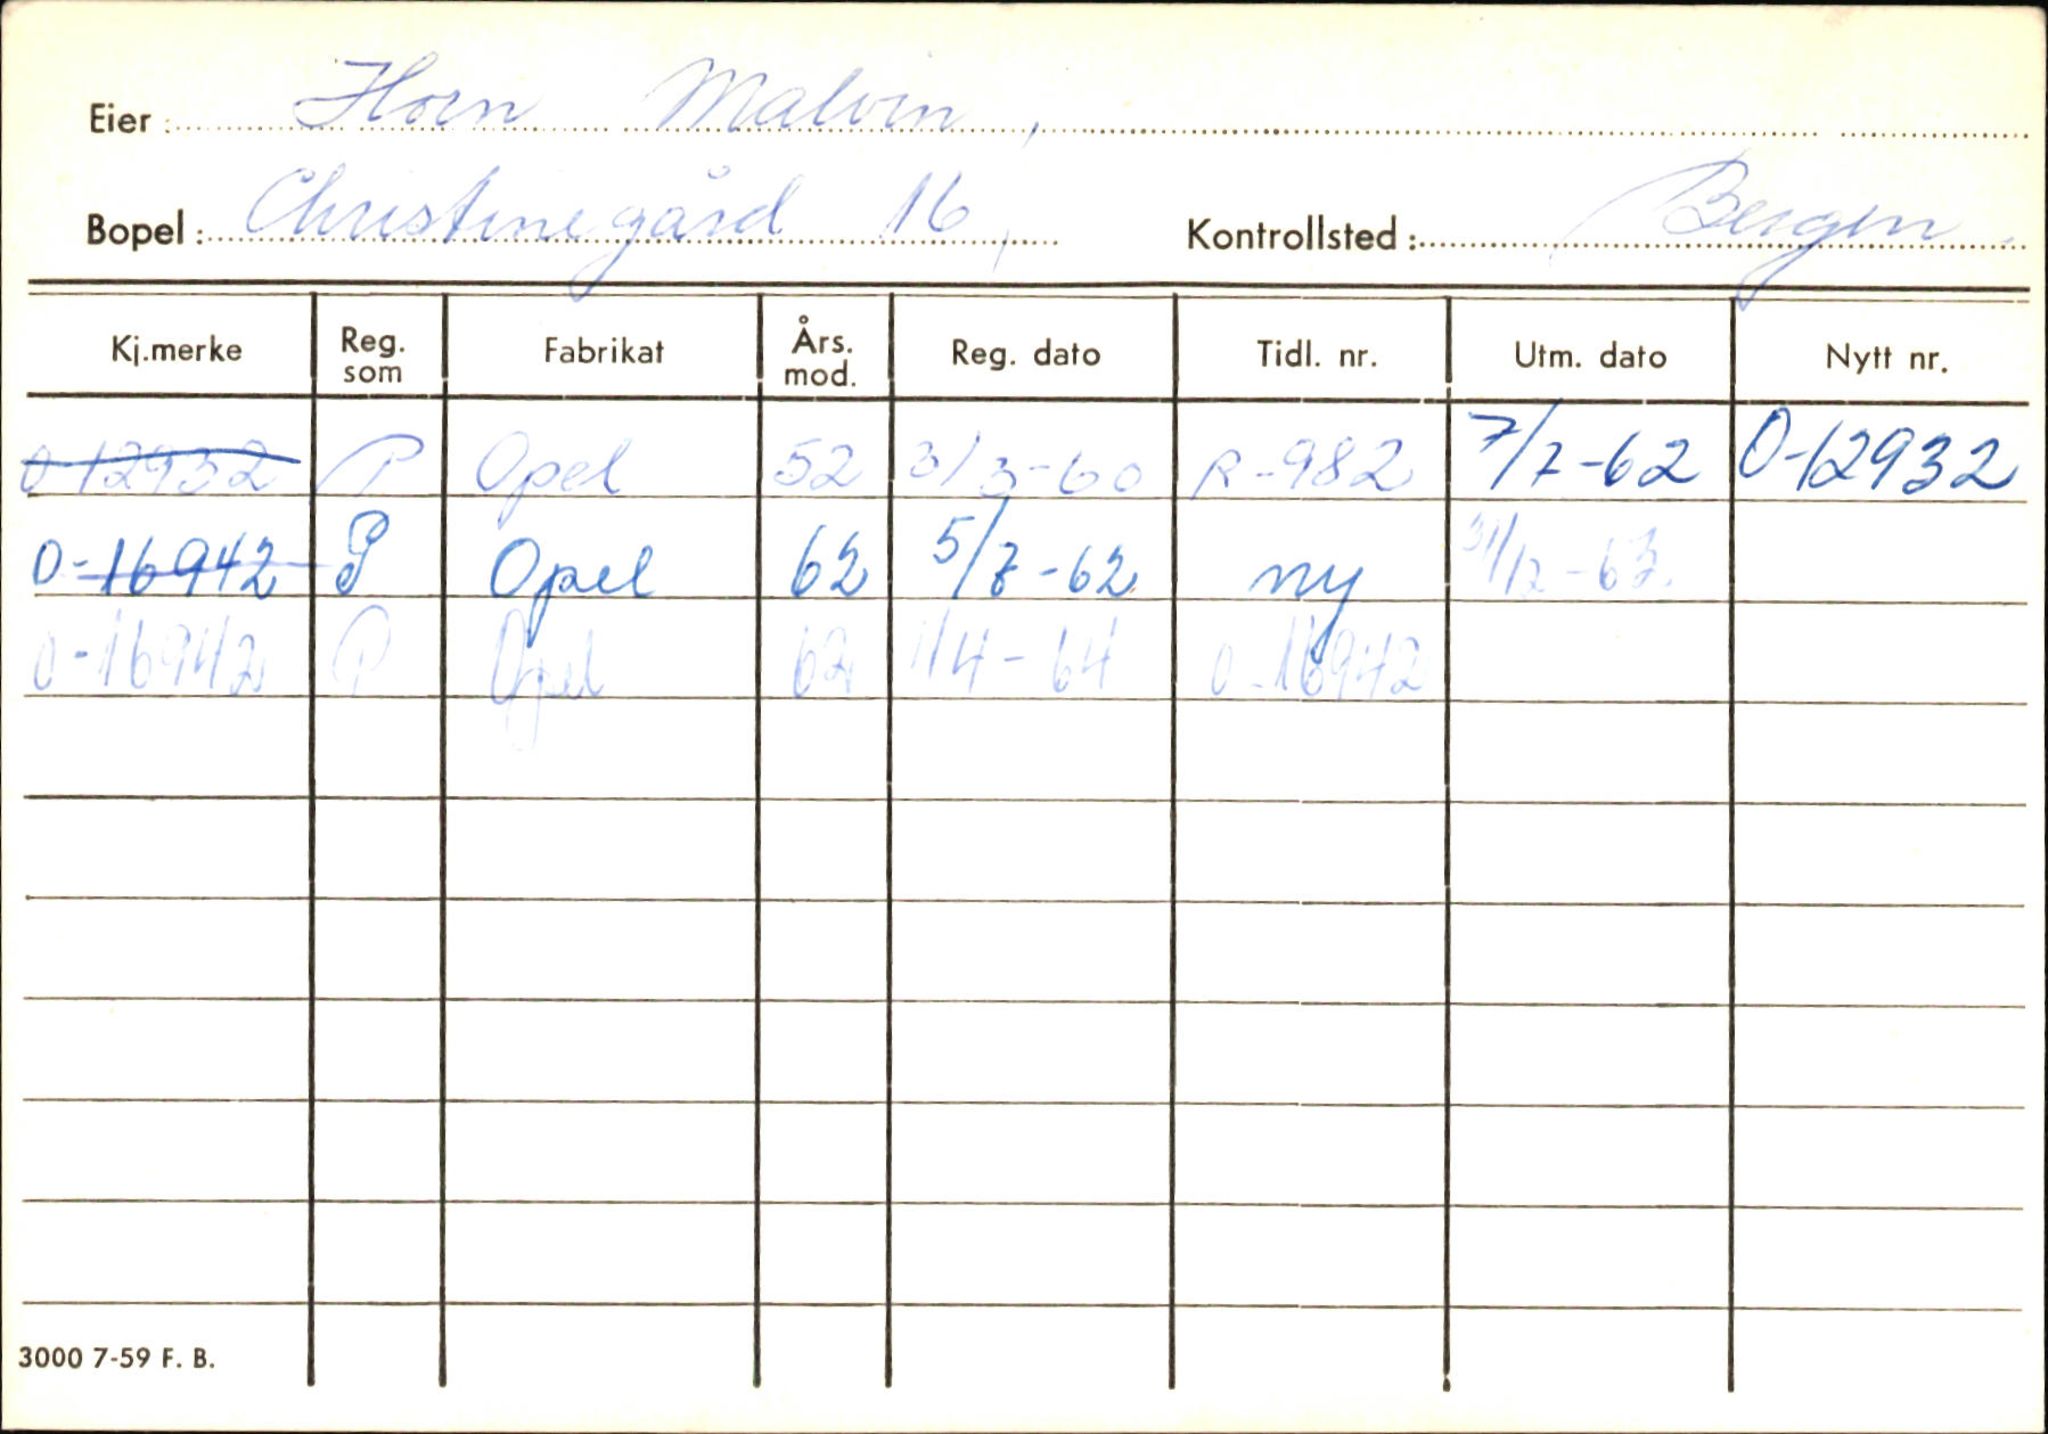 Eier : Horn Malvin,
Bopel : Christinegård 16, Kontrollsted : Bergen.
Kj.merke Reg. som Fabrikat Års. mod. Reg. dato Tidl. nr. Utm. dato Nytt nr.
O-12932 P Opel 52 3/3-60 R-982 7/7-62 O-12932
O-16942 P Opel 62 5/7-62 ny 31/12-63.
O-16942 P Opel 62 1/4-64 O-16942
3000 7-59 F. B.